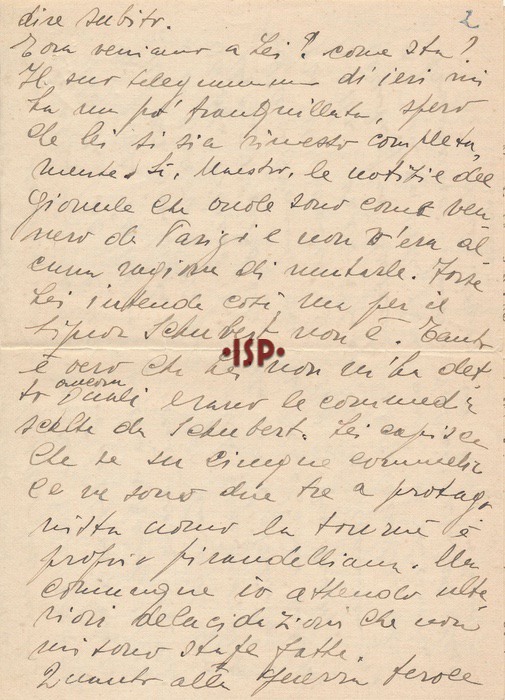 2
dire subito.
E ora veniamo a Lei! come sta?
Il suo telegramma di ieri mi
ha un po' tranquillata, spero
che lei si sia rimesso completa
mente. Sì, Maestro, le notizie del
giornale che vuole sono come ven
nero da Parigi e non v'era al
cuna ragione di mutarle. Forse
Lei intende così ma per il
signor Schubert non è. Tanto
·ISP·
è vero che Lei non m'ha det
to ancora quali erano le commedie
scelte da Schubert. Lei capisce
che se su cinque commedie
ce ne sono due tre a protago
nista uomo la tourné è
proprio pirandelliana. Ma
comunque io attendo ulte
riori delucidazioni che non
mi sono state fatte.
Quanto alla guerra feroce